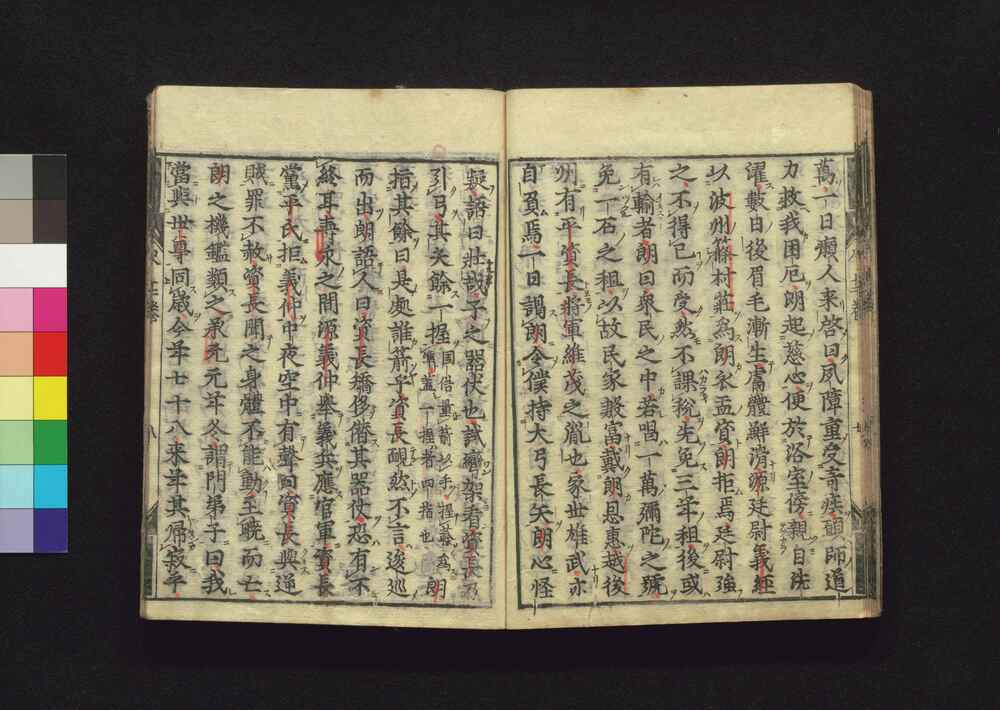 萬一日癩人来啓曰夙障重受奇疾願師道
力救我困厄朗起慈心便於浴室傍親自洗
濯數日後眉毛漸生膚體鮮滑源廷尉義經
以波州篠村莊爲朗衣盂資朗拒焉廷尉強
之不得已而受然不課稅先免三年租後或
有輸者朗曰衆民之中若唱一萬彌陀之號
免一石之租以故民家殷富戴朗恩惠越後
州有平資長將軍維茂之胤也家世雄武亦
自負焉一日謁朗令僕持大弓長矢朗心怪
疑語曰壯哉子之器仗也試彎架看資長乃
引弓其矢餘一握
國俗量箭以手握爲
準蓋一握者四指也
朗
指其餘曰是處誰箭乎資長靦然不言逡巡
而出朗語人曰資長矯侈僭其器仗恐有不
終耳壽永之間源義仲舉義兵應官軍資長
黨平氏拒義仲中夜空中有聲曰資長與逆
賊罪不赦資長聞之身體不能動至曉而亡
朗之機鑑類之承元元年冬謂門弟子曰我
當與世尊同歲今年七十八来年其歸寂乎
八